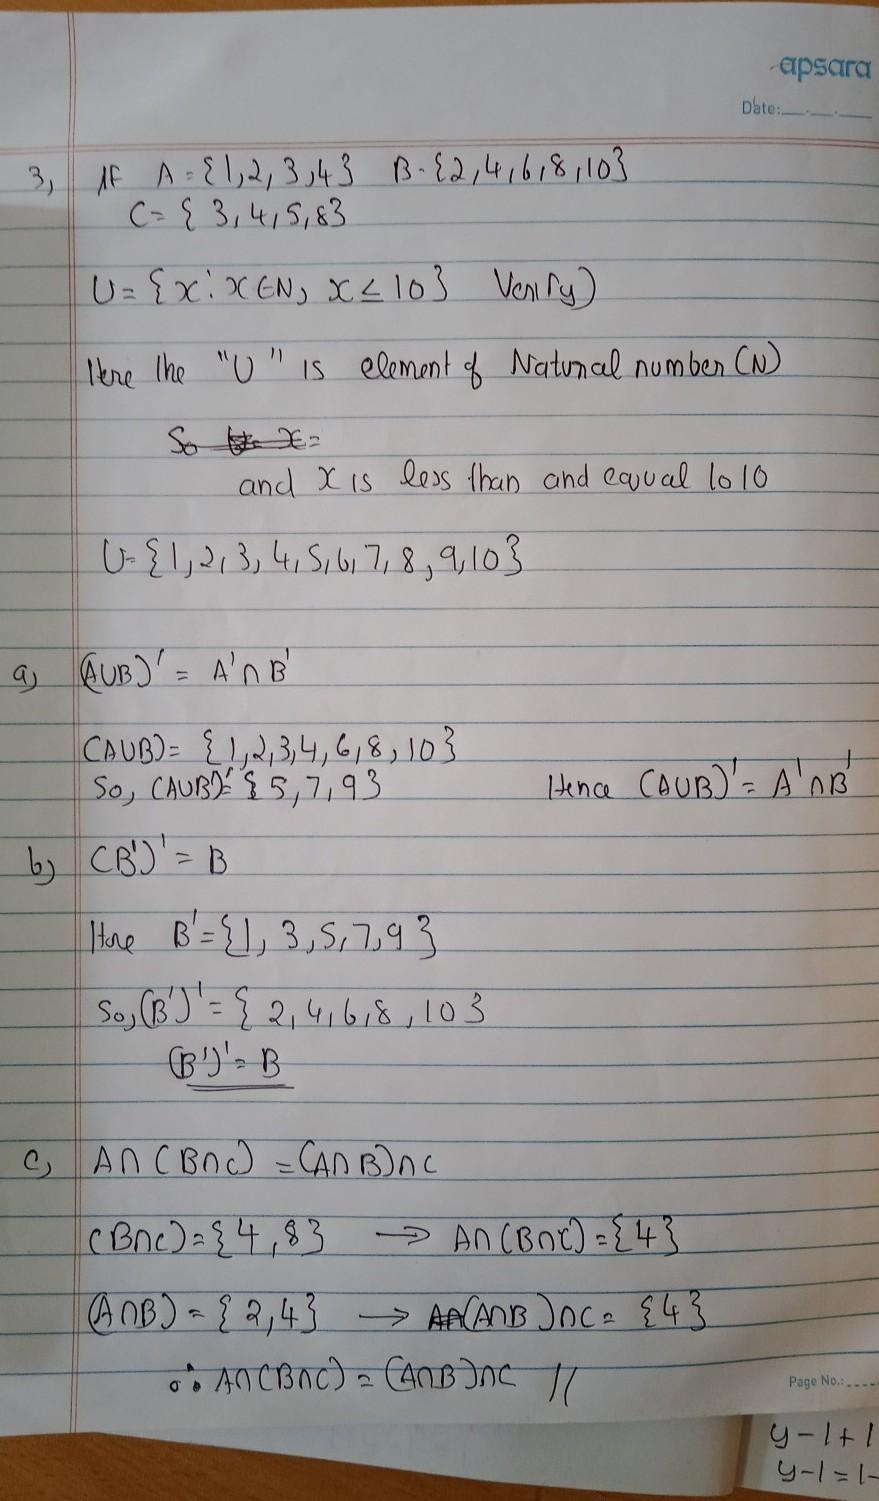 apsara
Date:__.__.__
3, If A = {1,2,3,4} B = {2,4,6,8,10}
C = { 3,4,5,8}
U = {x : x ∈ N, x ≤ 10} Verify)
Here the "U" is element of Natural number (N)
So x =
and x is less than and equal to 10
U = {1,2,3,4,5,6,7,8,9,10}
a) (A∪B)' = A'∩B'
(A∪B) = {1,2,3,4,6,8,10}
So, (A∪B)' = {5,7,9} Hence (A∪B)' = A'∩B'
b) (B')' = B
Here B' = {1, 3,5,7,9}
So, (B')' = { 2,4,6,8,10}
(B')' = B
c, A∩(B∩C) = (A∩B)∩C
(B∩C) = {4,8} → A∩(B∩C) = {4}
(A∩B) = {2,4} → (A∩B)∩C = {4}
∴ A∩(B∩C) = (A∩B)∩C //
Page No.:
y-1+1
y-1=1-